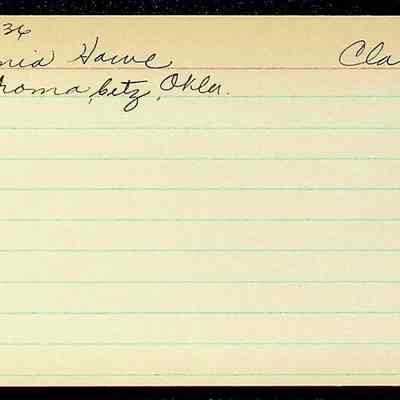 36
nia Howe Cla
homa, City, Okla.